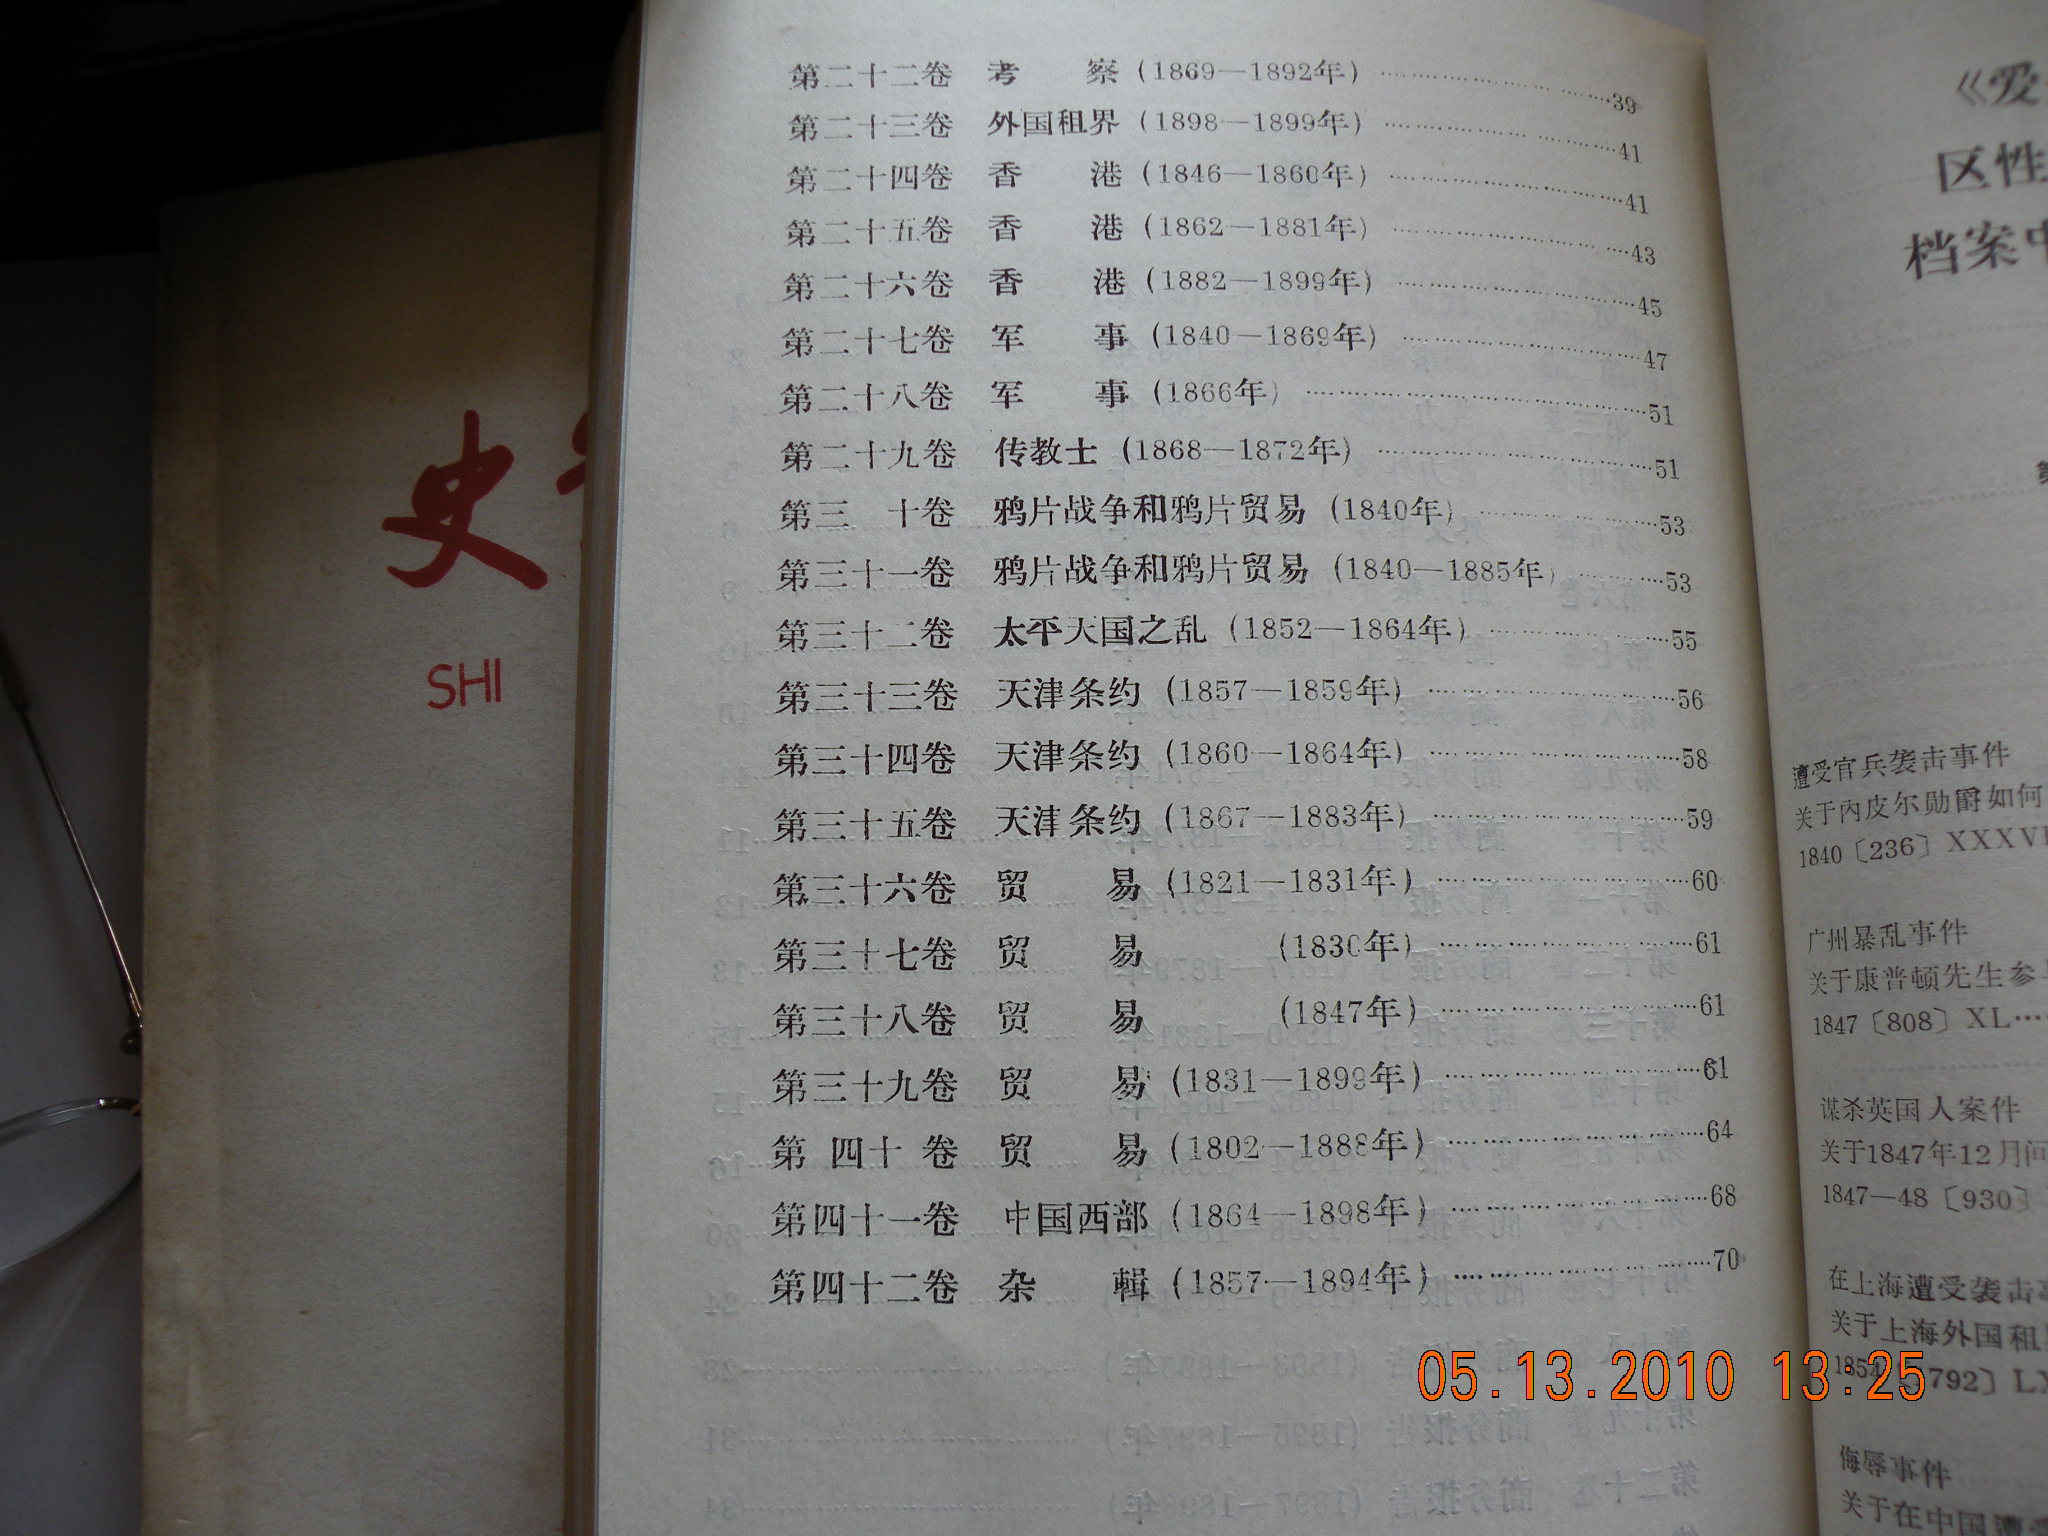 第二十二卷 考 察 (1869—1892年) ……………………39
第二十三卷 外国租界 (1898—1899年) ……………………41
第二十四卷 香 港 (1846—1860年) ……………………41
第二十五卷 香 港 (1862—1881年) ……………………43
第二十六卷 香 港 (1882—1899年) ……………………45
第二十七卷 军 事 (1840—1869年) ……………………47
第二十八卷 军 事 (1866年) ……………………51
第二十九卷 传教士 (1868—1872年) ……………………51
第三 十卷 鸦片战争和鸦片贸易 (1840年) ……………53
第三十一卷 鸦片战争和鸦片贸易 (1840—1885年) ………53
第三十二卷 太平天国之乱 (1852—1864年) ……………55
第三十三卷 天津条约 (1857—1859年) ……………………56
第三十四卷 天津条约 (1860—1864年) ……………………58
第三十五卷 天津条约 (1867—1883年) ……………………59
第三十六卷 贸 易 (1821—1831年) ……………………60
第三十七卷 贸 易 (1830年) ……………………61
第三十八卷 贸 易 (1847年) ……………………61
第三十九卷 贸 易 (1831—1899年) ……………………61
第 四十 卷 贸 易 (1802—1888年) ……………………64
第四十一卷 中国西部 (1864—1898年) ……………………68
第四十二卷 杂 輯 (1857—1894年) ……………………70
史
SHI
《爱
区性
档案中
遭受官兵袭击事件
关于内皮尔勋爵如何
1840〔236〕XXXVI
广州暴乱事件
关于康普顿先生参与
1847〔808〕XL……
谋杀英国人案件
关于1847年12月间
1847—48〔930〕
在上海遭受袭击事
关于上海外国租界
1854〔1792〕LX
侮辱事件
关于在中国遭受
05.13.2010 13:25